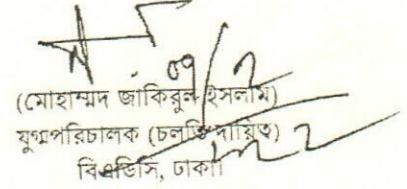 (মোহাম্মদ জাকিরুল ইসলাম)
যুগ্মপরিচালক (চলতি দায়িত্ব)
বিএডিসি, ঢাকা।